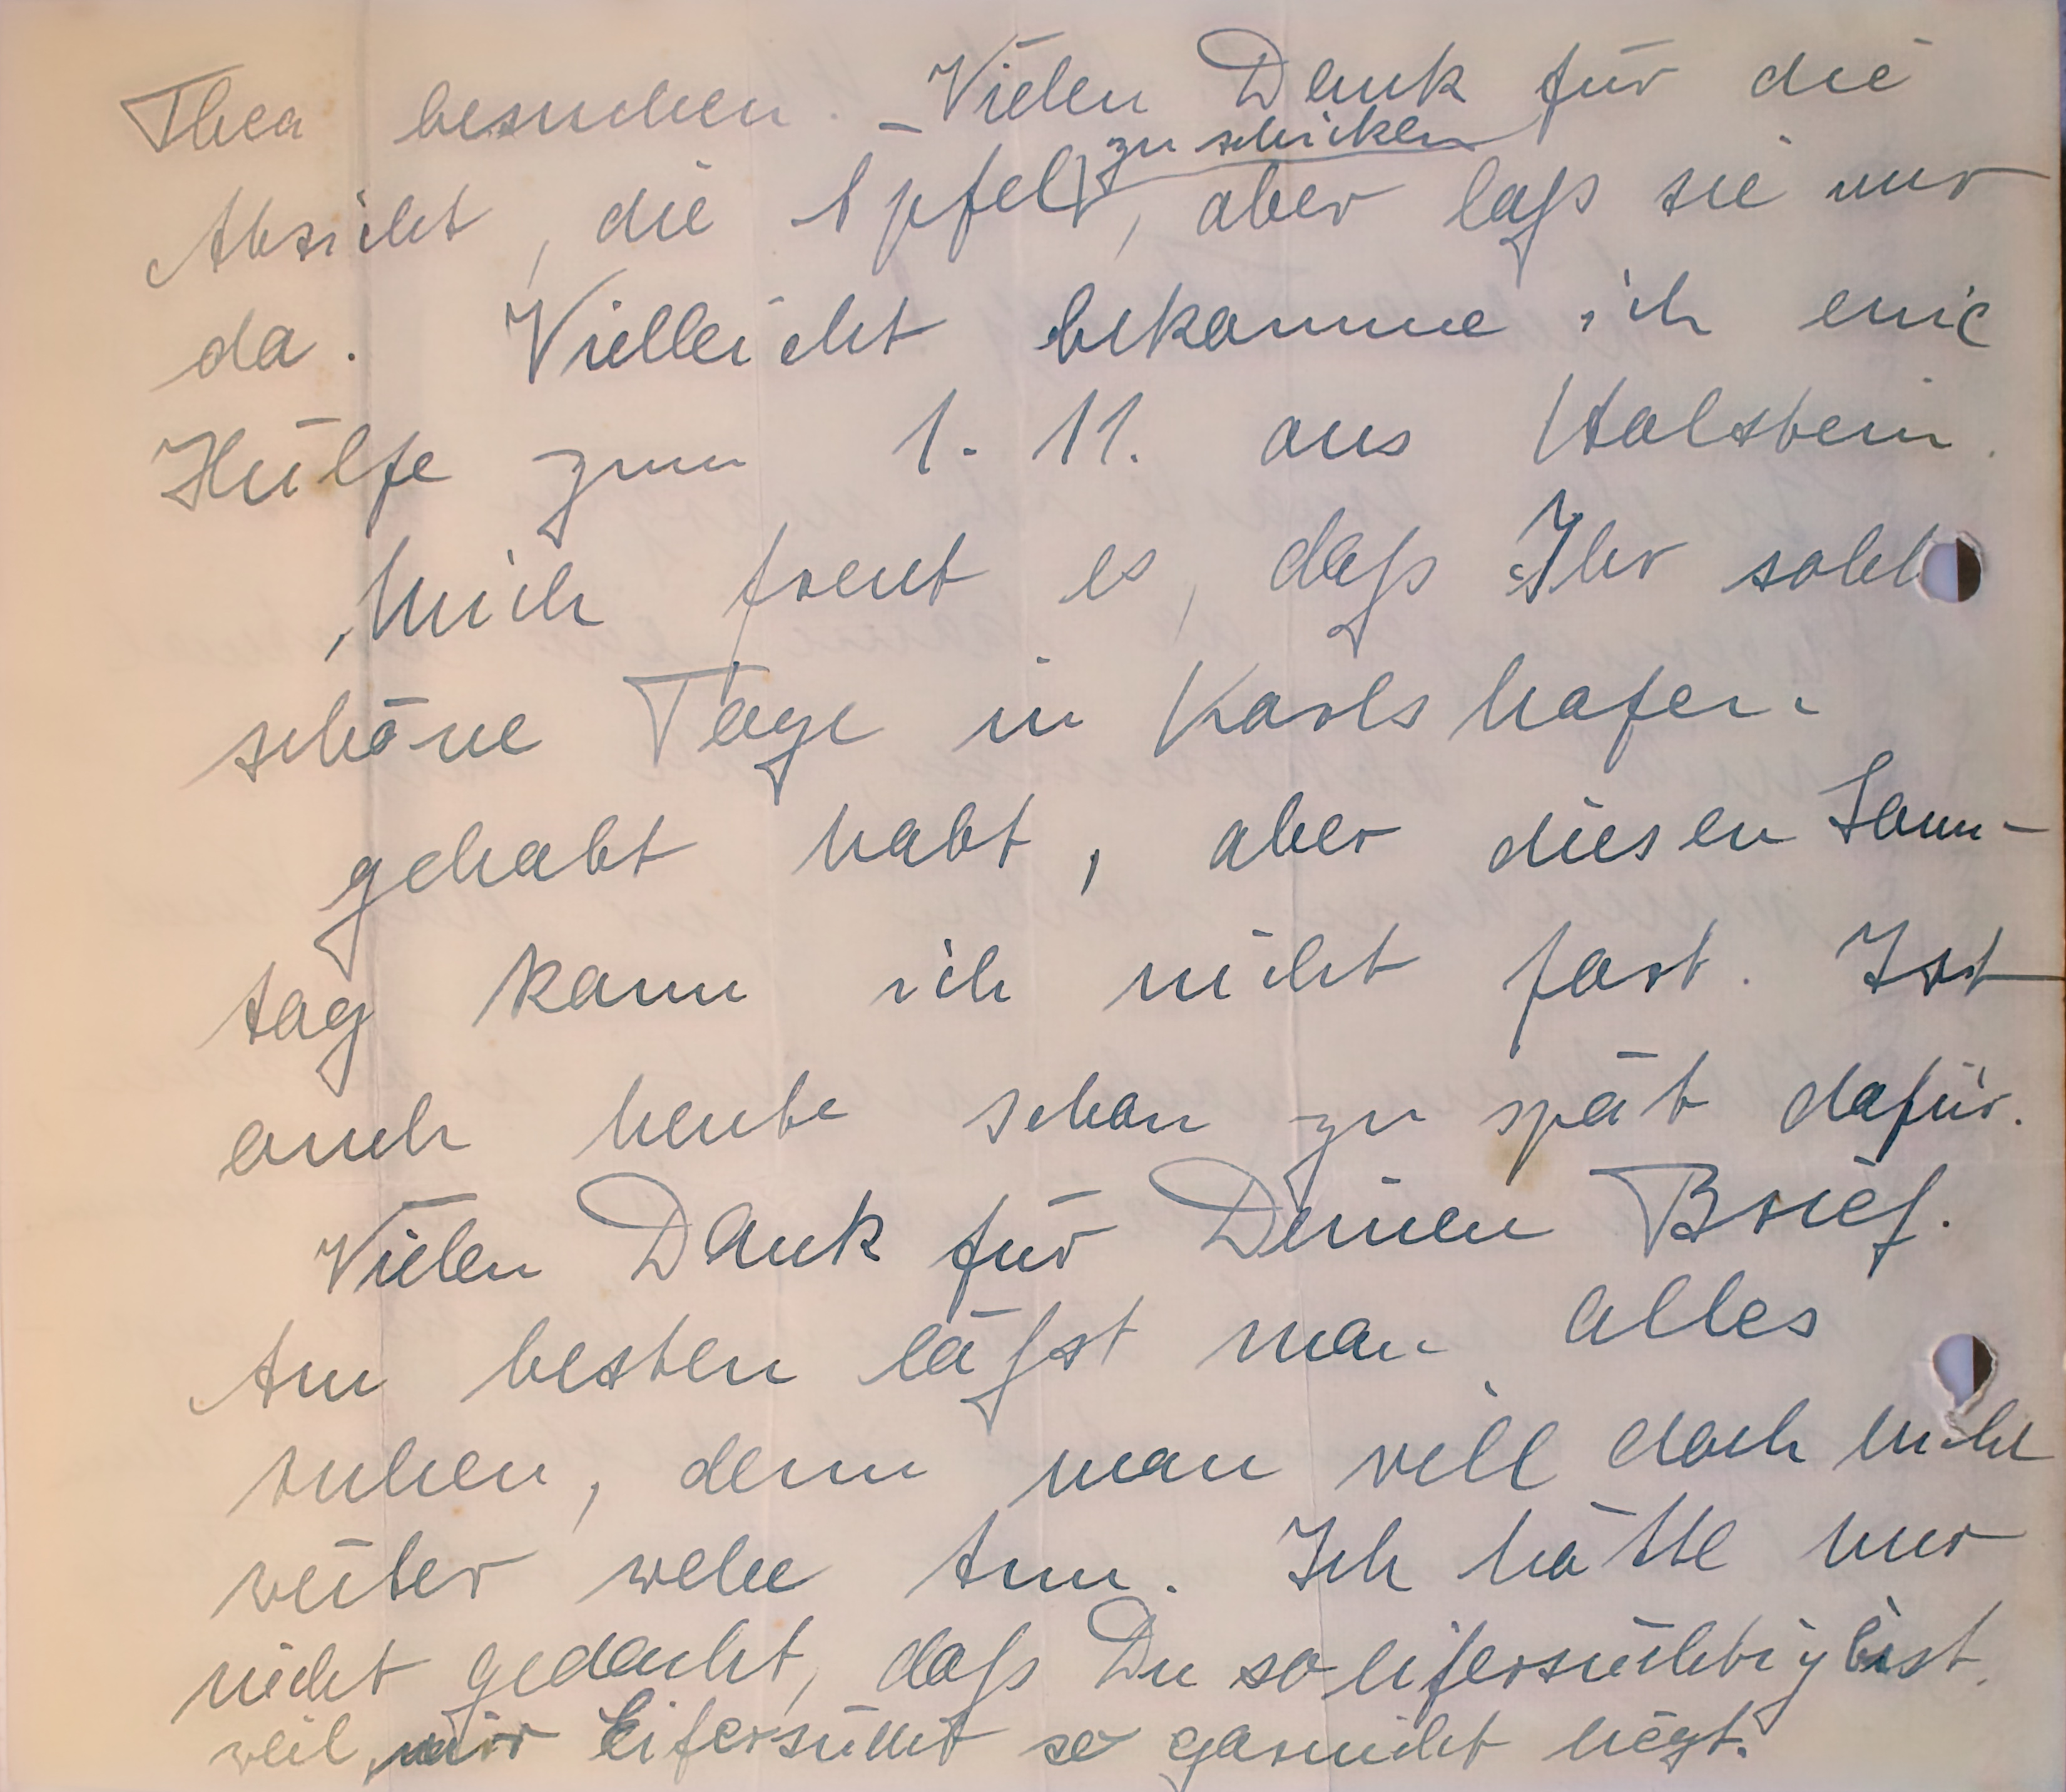 Thea besuchen. – Vielen Dank für die
Absicht, die Äpfel zu schicken, aber laß sie nur
da. Vielleicht bekomme ich eine
Hülfe zum 1. 11. aus Holstein.
Mich freut es, daß Ihr solch
schöne Tage in Karlshafen
gehabt habt, aber diesen Sonn-
tag kann ich nicht fort. Ist
auch heute schon zu spät dafür.
Vielen Dank für Deinen Brief.
Am besten läßt man alles
ruhen, denn man will doch nicht
weiter wehe tun. Ich hätte nur
nicht gedacht, daß Du so eifersüchtig bist,
weil mir Eifersucht so garnicht liegt.